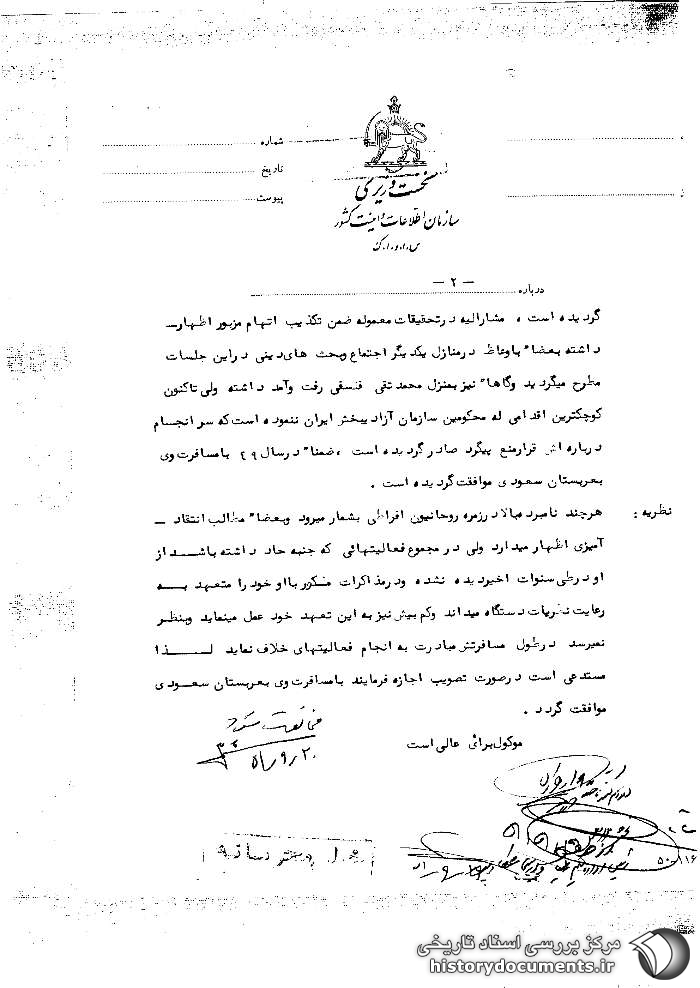 شماره
تاریخ
پیوست
نخست وزیری
سازمان اطلاعات و امنیت کشور
س.ا.و.ا.ک
درباره
- ۲ -
گردیده است ، مشارالیه درتحقیقات معموله ضمن تکذیب اتهام مزبور اظهار ـ
داشته بعضاً باوعاظ درمنازل یکدیگر اجتماع وبحث های دینی دراین جلسات
مطرح میگردید وگاهاً نیز بمنزل محمد تقی فلسفی رفت وآمد داشته ولی تاکنون
کوچکترین اقدامی له محکومین سازمان آزادیبخش ایران ننموده است که سرانجام
درباره اش قرارمنع پیگرد صادر گردیده است ، ضمناً درسال ۴۹ بامسافرت وی
بعربستان سعودی موافقت گردیده است .
نظریه :
هرچند نامبرده بالا درزمره روحانیون افراطی بشمار میرود وبعضاً مطالب انتقاد ـ
آمیزی اظهار میدارد ولی در مجموع فعالیتهائی که جنبه حاد داشته باشد از
او درطی سنوات اخیر دیده نشده ودرمذاکرات متکرر با او خود را متعهد به
رعایت نظریات دستگاه میداند وکم بیش نیز به این تعهد خود عمل مینماید وبنظر
نمیرسد درطول مسافرتش مبادرت به انجام فعالیتهای خلاف نماید لذا
مستدعی است درصورت تصویب اجازه فرمایند بامسافرت وی بعربستان سعودی
موافقت گردد .
موکول برائی عالی است
۵۱/۹/۲۰
مرکز بررسی اسناد تاریخی
historydocuments.ir